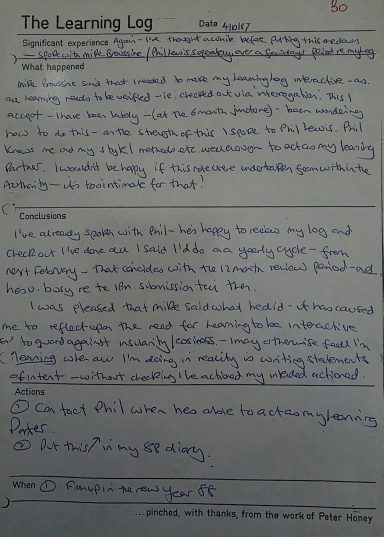 80
The Learning Log Date 4/10/87
Significant experience Again - I've thought a while before putting this down
- spoke with Mike Broussine / Phil Lewis separately over a few days period re my log.
What happened
Mike Broussine said that I needed to make my learning log interactive - as
all learning needs to be verified - ie. checked out via interrogation. This I
accept - I have been lately - (at the 6 month juncture) - been wondering
how to do this - on the strength of this I spoke to Phil Lewis. Phil
knows me and my style / methods etc. well enough to act as my learning
Partner. I wouldn't be happy if this role were undertaken from within the
Authority - it's too intimate for that!
Conclusions
I've already spoken with Phil - he's happy to review my log and
check out I've done all I said I'd do on a yearly cycle - from
next February - that coincides with the 12 month review period - and
he's v. busy re submission till then.
I was pleased that Mike said what he did - it has caused
me to reflect upon the need for learning to be interactive
and to guard against insularity / cosiness - I may otherwise feel I'm
"learning" when all I'm doing in reality is writing statements
of intent - without checking I've actioned my intended actioned.
Actions
① Contact Phil when he's able to act as my learning
Partner.
② Put this in my 88 diary.
When ① Firm up in the new year 88
....pinched, with thanks, from the work of Peter Honey